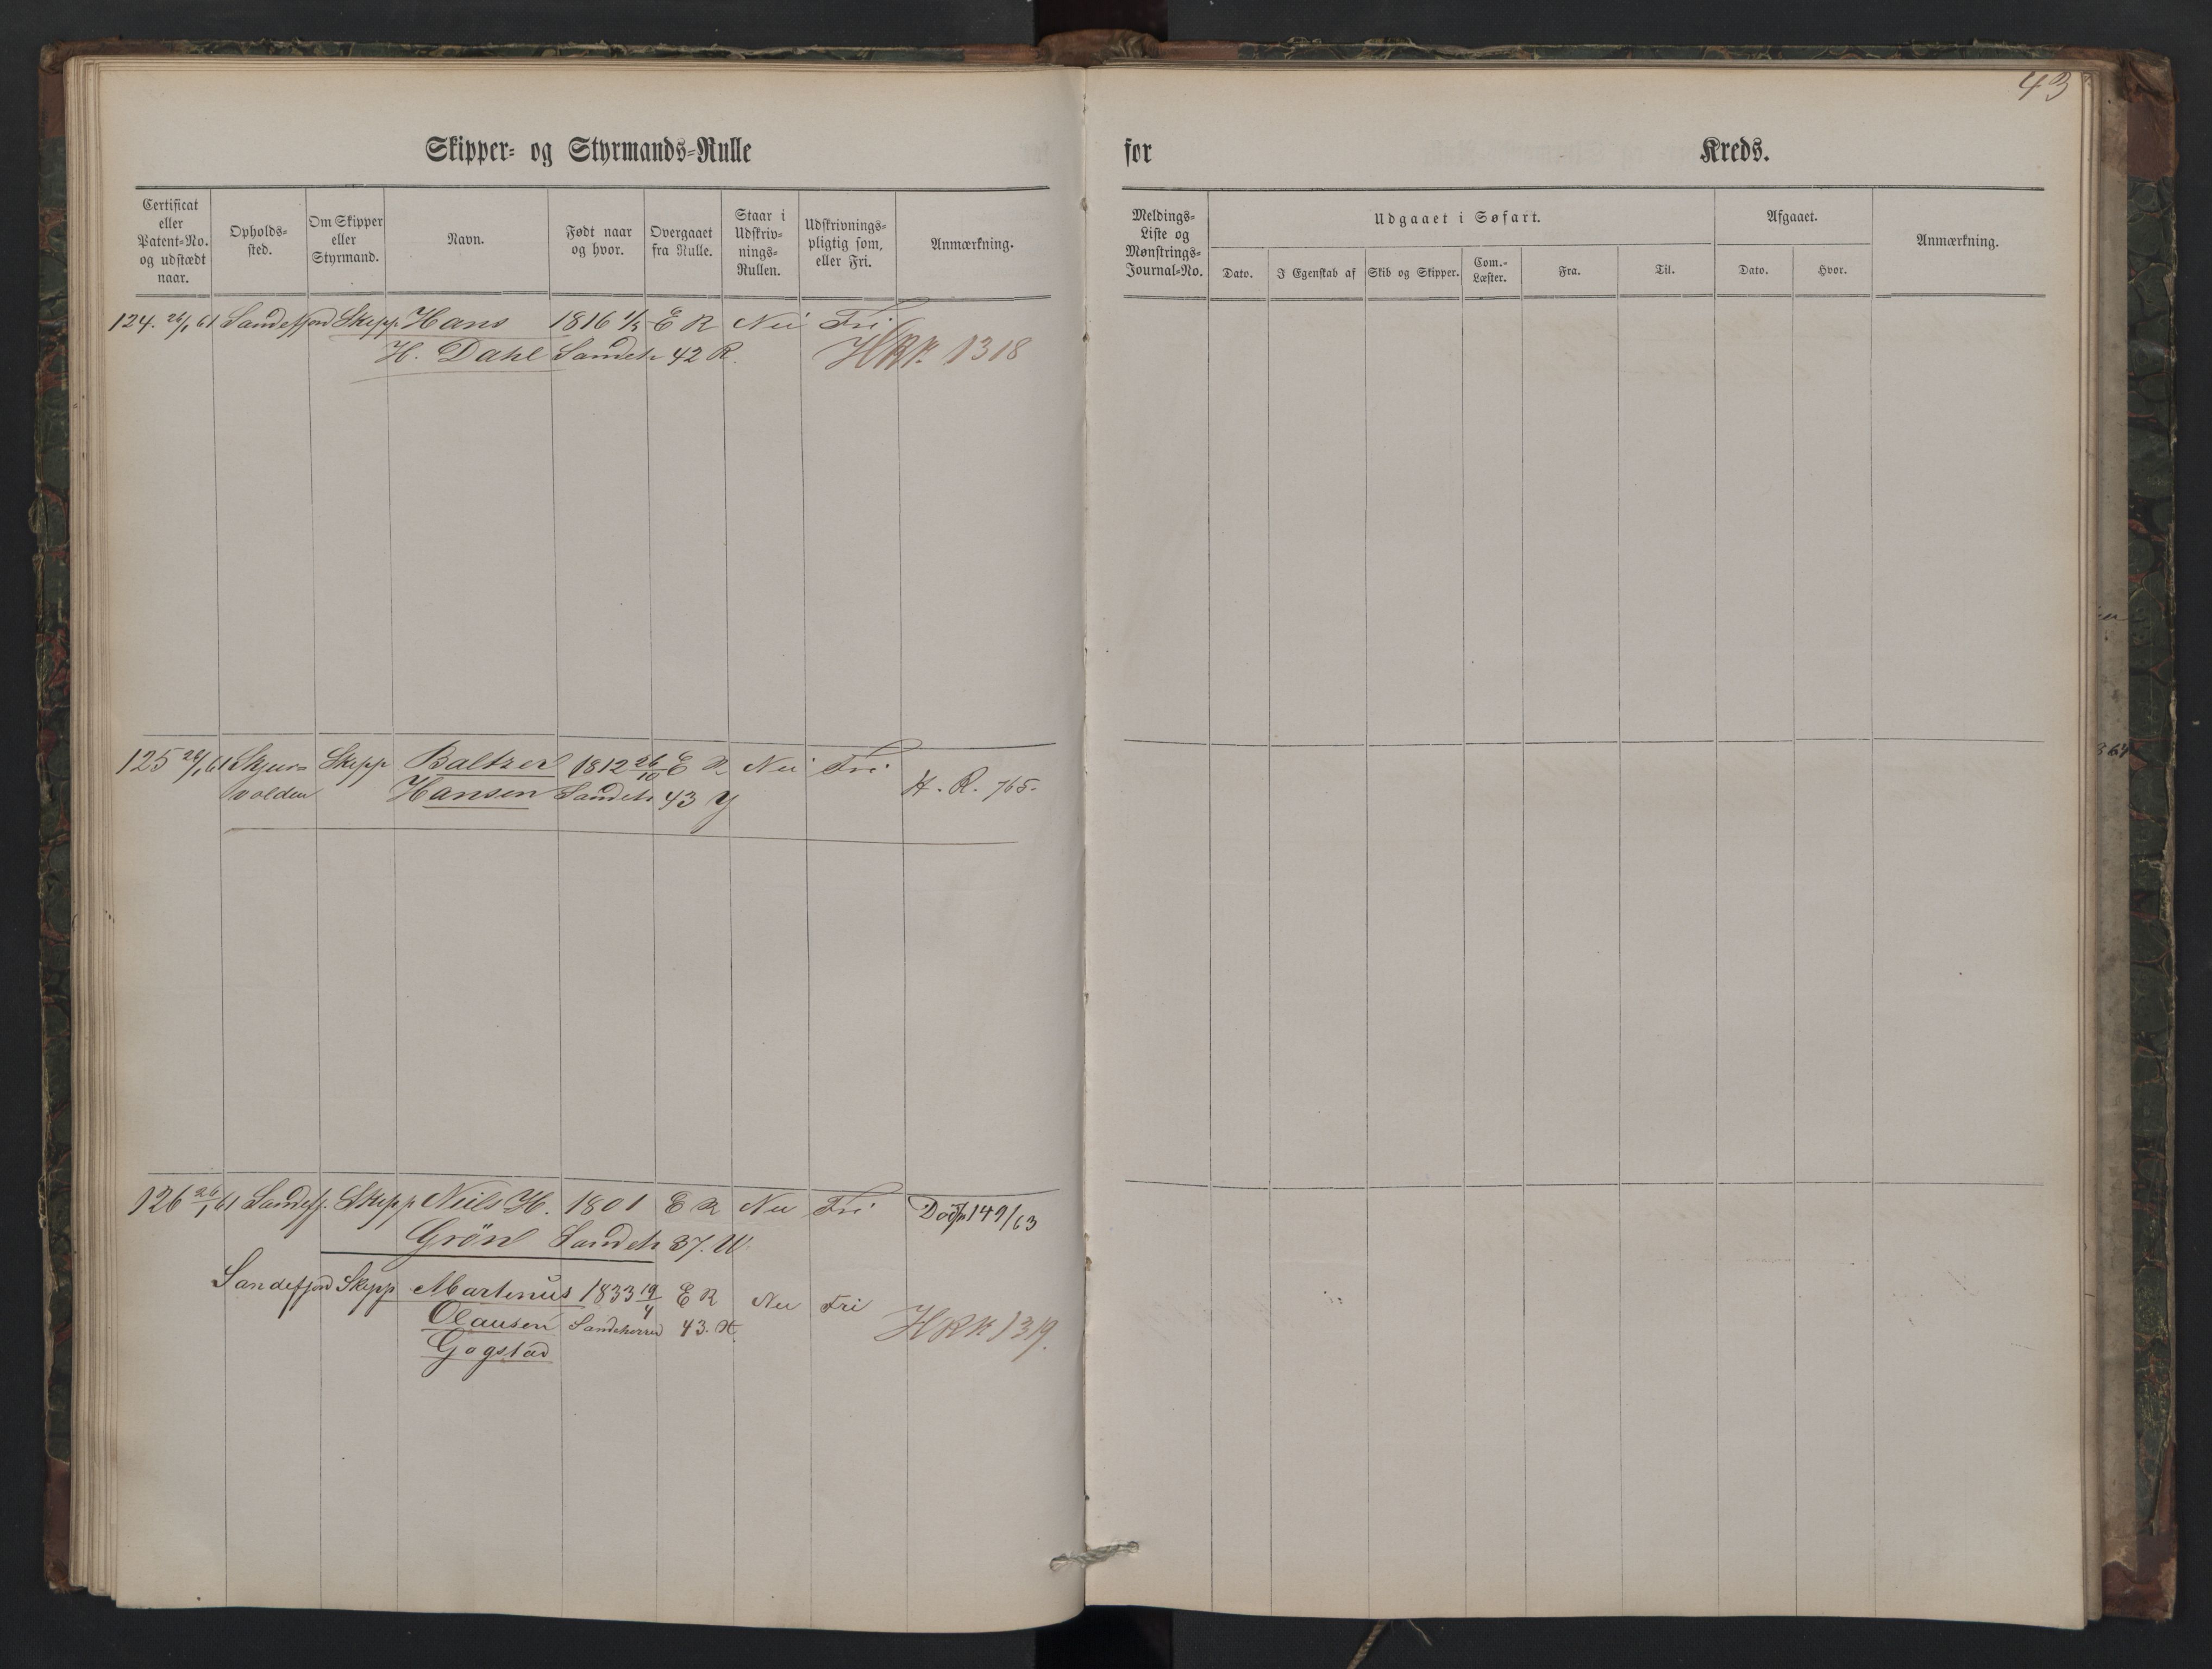 43
Skipper- og Styrmands-Rulle
for Kreds.
Certificat eller Patent-No. og udstædt naar.
Opholds-sted.
Om Skipper eller Styrmand.
Navn.
Født naar og hvor.
Overgaaet fra Rulle.
Staar i Udskriv-nings-Rullen.
Udskrivnings-pligtig som, eller Fri.
Anmærkning.
Meldings-Liste og Mønstrings-Journal-No.
Udgaaet i Søfart.
Dato.
I Egenskab af
Skib og Skipper.
Com.-Læster.
Fra.
Til.
Afgaaet.
Dato.
Hvor.
Anmærkning.
124. 26/1 61 Sandefjord Skipp. Hans 1816 1/5 E R Nei Fri
H. Dahl Sandeh 42 R. 1318
125 26/1 61 Skjers Skipp Baltzer 1812 26/10 E R Nei Fri
volden Hansen Sandeh 43 Y H. R. 765.
126 26/1 61 Sandefj. Skipp Niels H. 1801 E R Nei Fri 149/63
Grön Sandeh 37. W
Sandefjord Skipp Martinus 1833 19/4 E R Nei Fri
Olausen Sandeherred 43. H. HRR 1319.
Gogstad